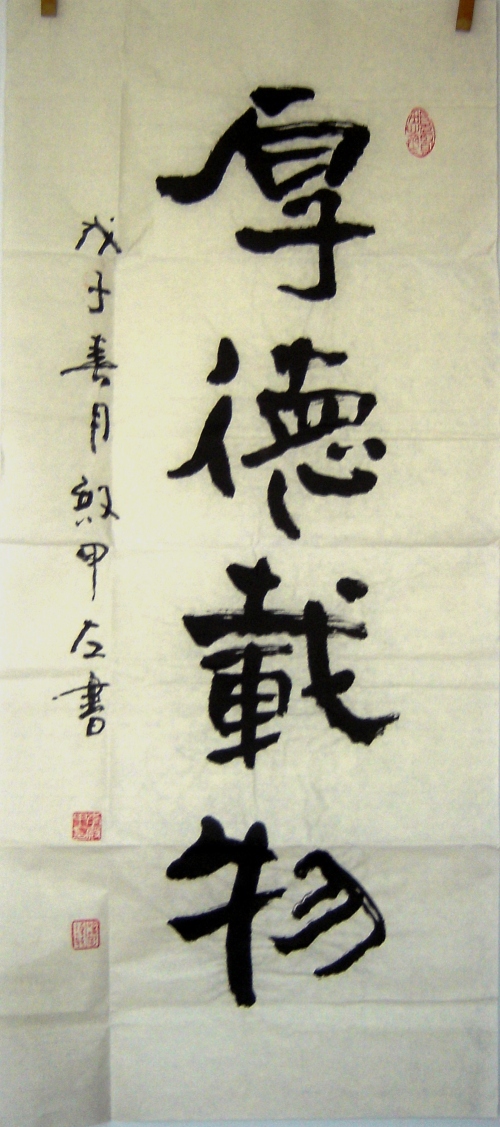 厚德載物
戊子春月殷甲左書